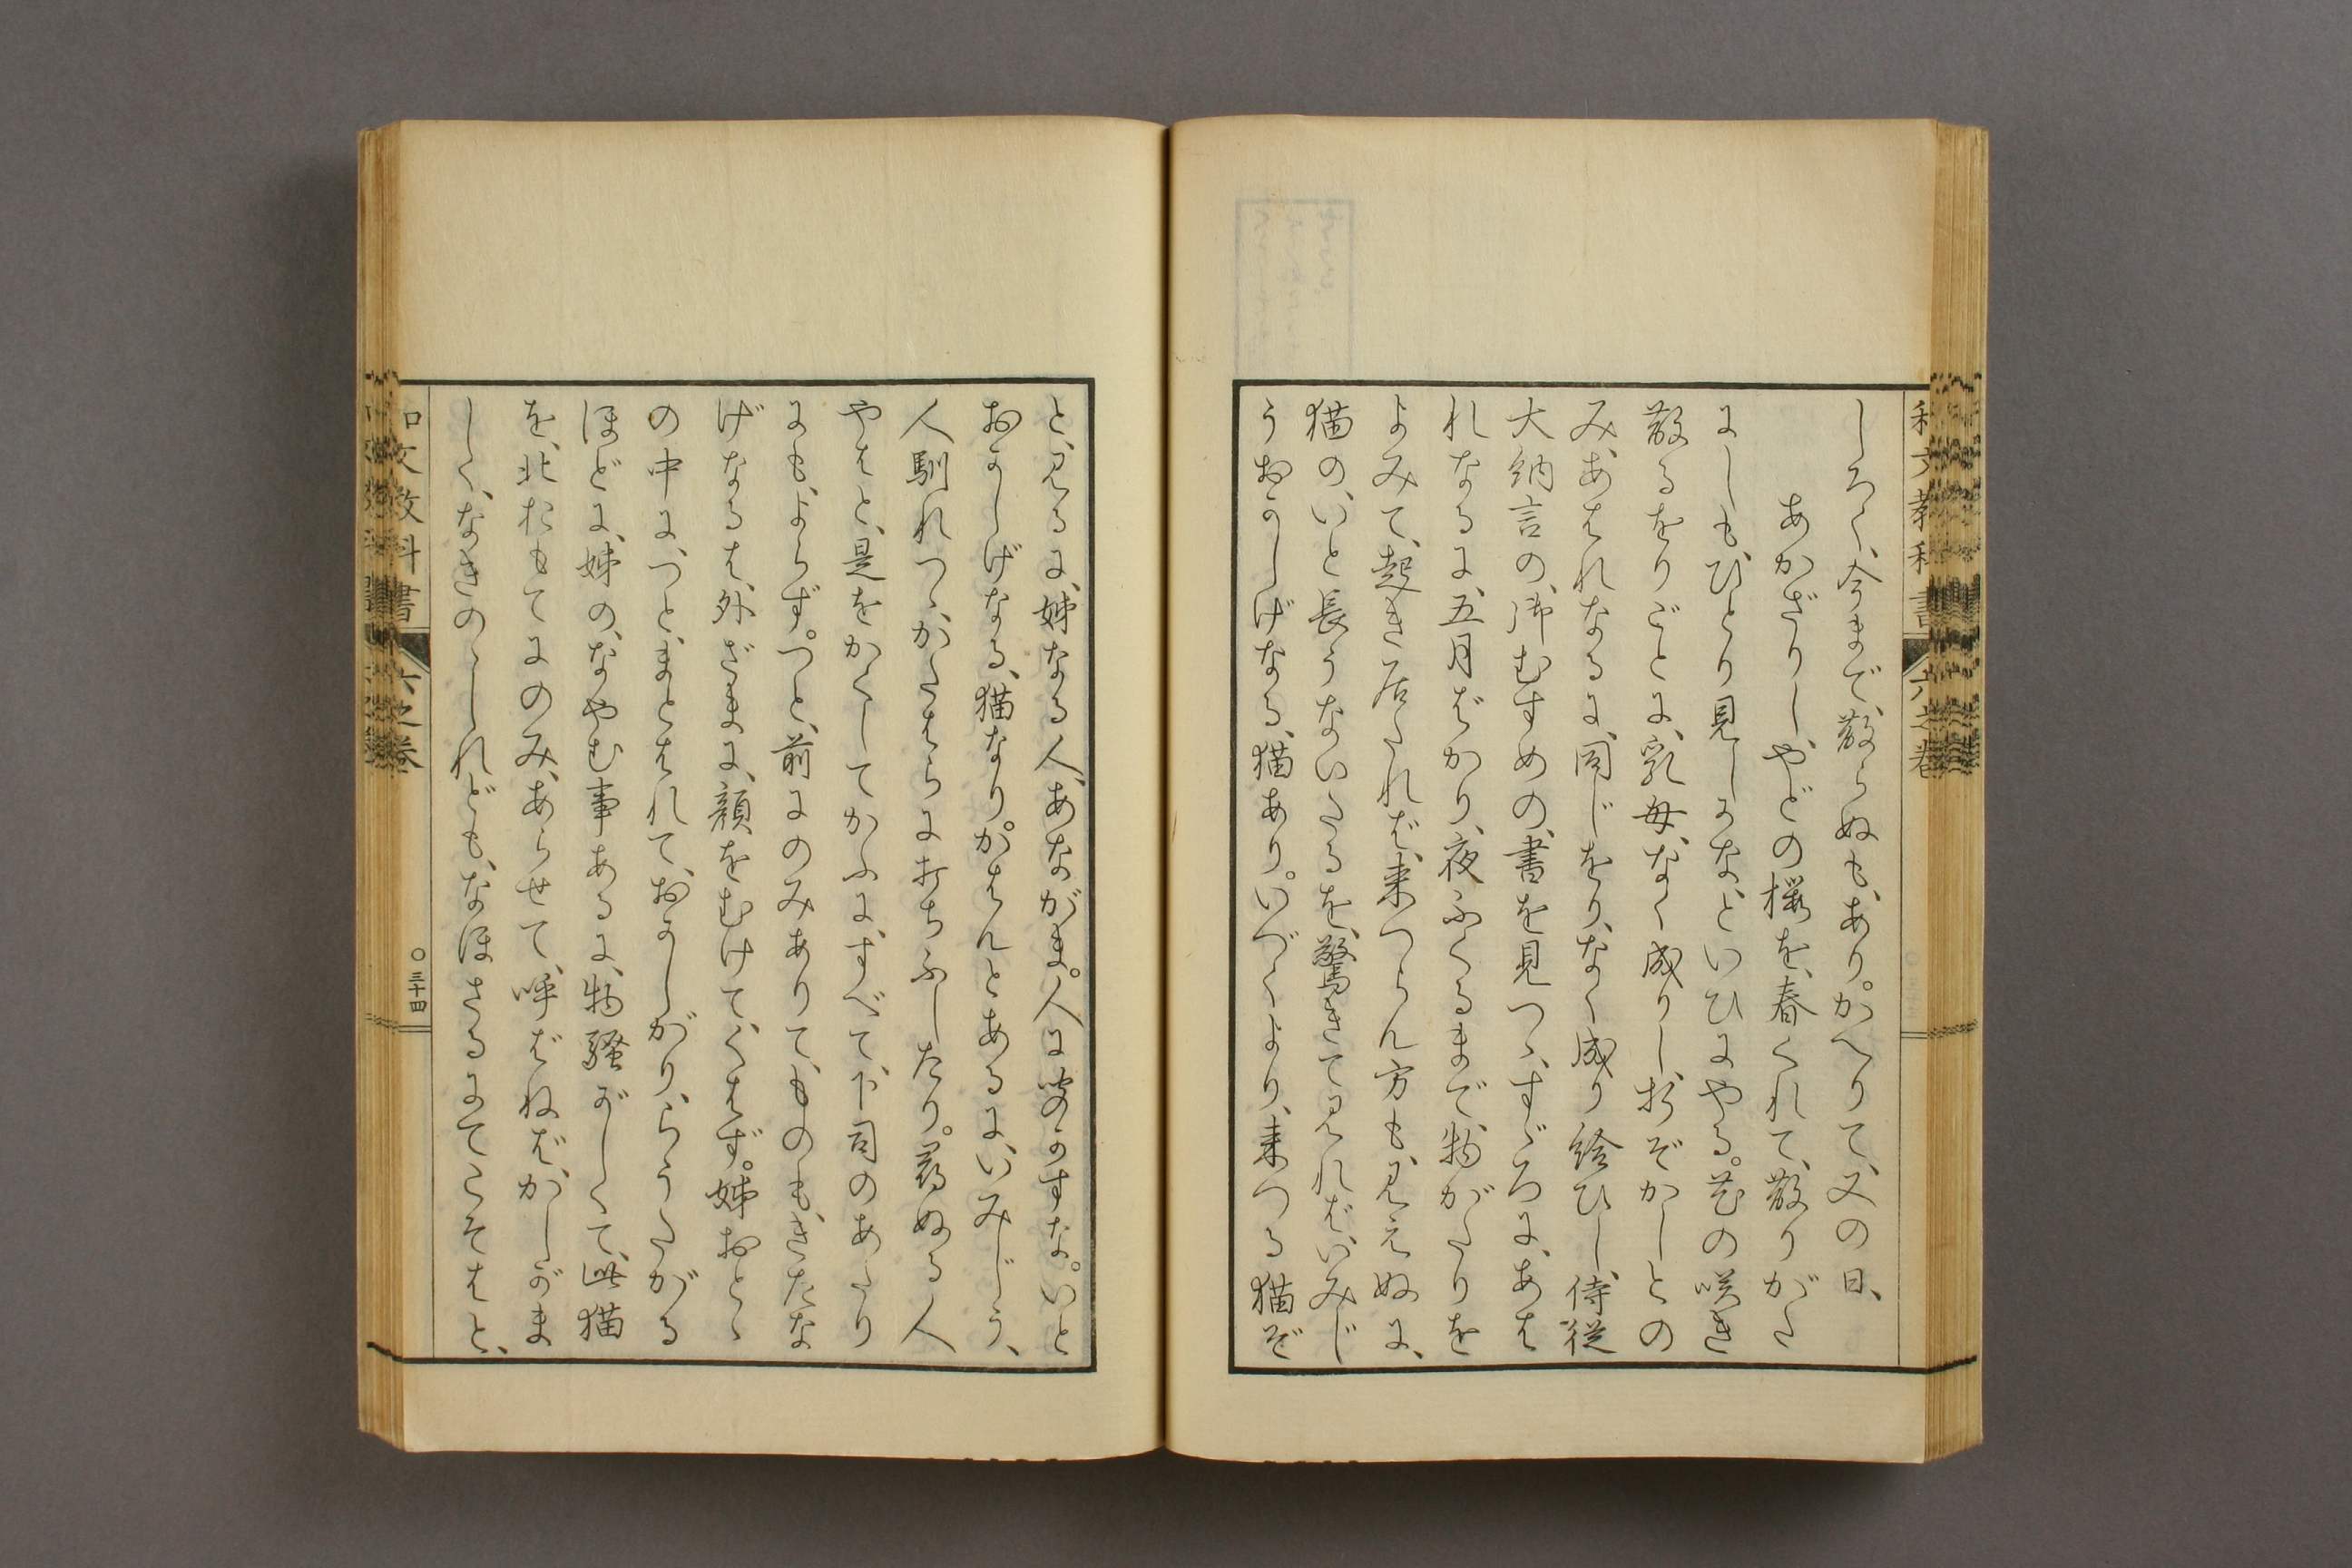 和文教科書 六之巻
しろく、今まで、散らぬも、あり。かへりて、又の日、
あかざりし、やどの櫻を、春くれて、散りがた
にしも、ひとり見しかな、といひにやる。花の咲き
散るをりごとに、乳母、なく成りし、折ぞかしとの
み、あはれなるに、同じをり、なく成り給ひし、侍従
大納言の、御むすめの、書を見つゝ、すゞろに、あは
れなるに、五月ばかり、夜ふくるまで、物がたりを
よみて、起き居たれば、来つらん方も、見えぬに、
猫の、いと長うないたるを、驚きて見れば、いみじ
うおかしげなる、猫あり。いづくより、来つる猫ぞ
と、見るに、姉なる人、あなかま。人に聞かすな。いと
おかしげなる、猫なり。かはんとあるに、いみじう、
人馴れつゝ、かたはらに打ちふしたり。尋ぬる人
やはと、是をかくしてかふに、すべて、下司のあたり
にも、よらず。つと、前にのみありて、ものも、きたな
げなるは、外ざまに、顔をむけて、くはず。姉おとゝ
の中に、つと、まとはれて、おかしがり、らうたがる
ほどに、姉の、なやむ事あるに、物騒がしくて、此猫
を、北おもてにのみ、あらせて、呼ばねば、かしがま
しく、なきのゝしれども、なほさるにてこそはと、
和文教科書 六之巻 ○三十四